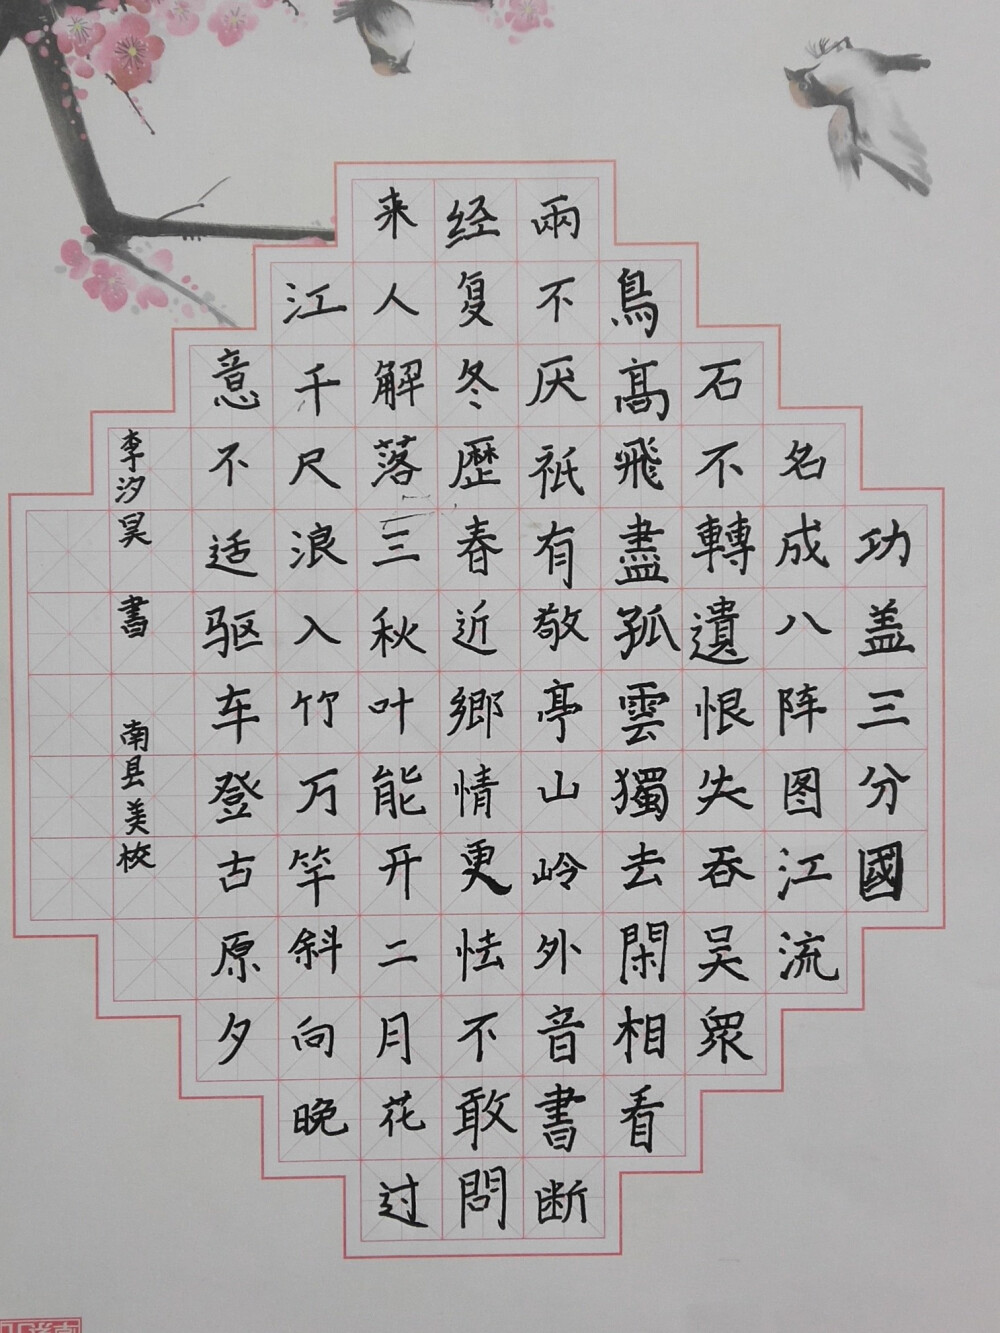 功盖三分國
名成八阵图江流
石不轉遺恨失吞吴眾
鳥高飛盡孤雲獨去閑相看
兩不厌祇有敬亭山岭外音書断
经复冬歷春近鄉情更怯不敢問
来人解落三秋叶能开二月花过
江千尺浪入竹万竿斜向晚
意不适驱车登古原夕
李汐昊 書 南县美校